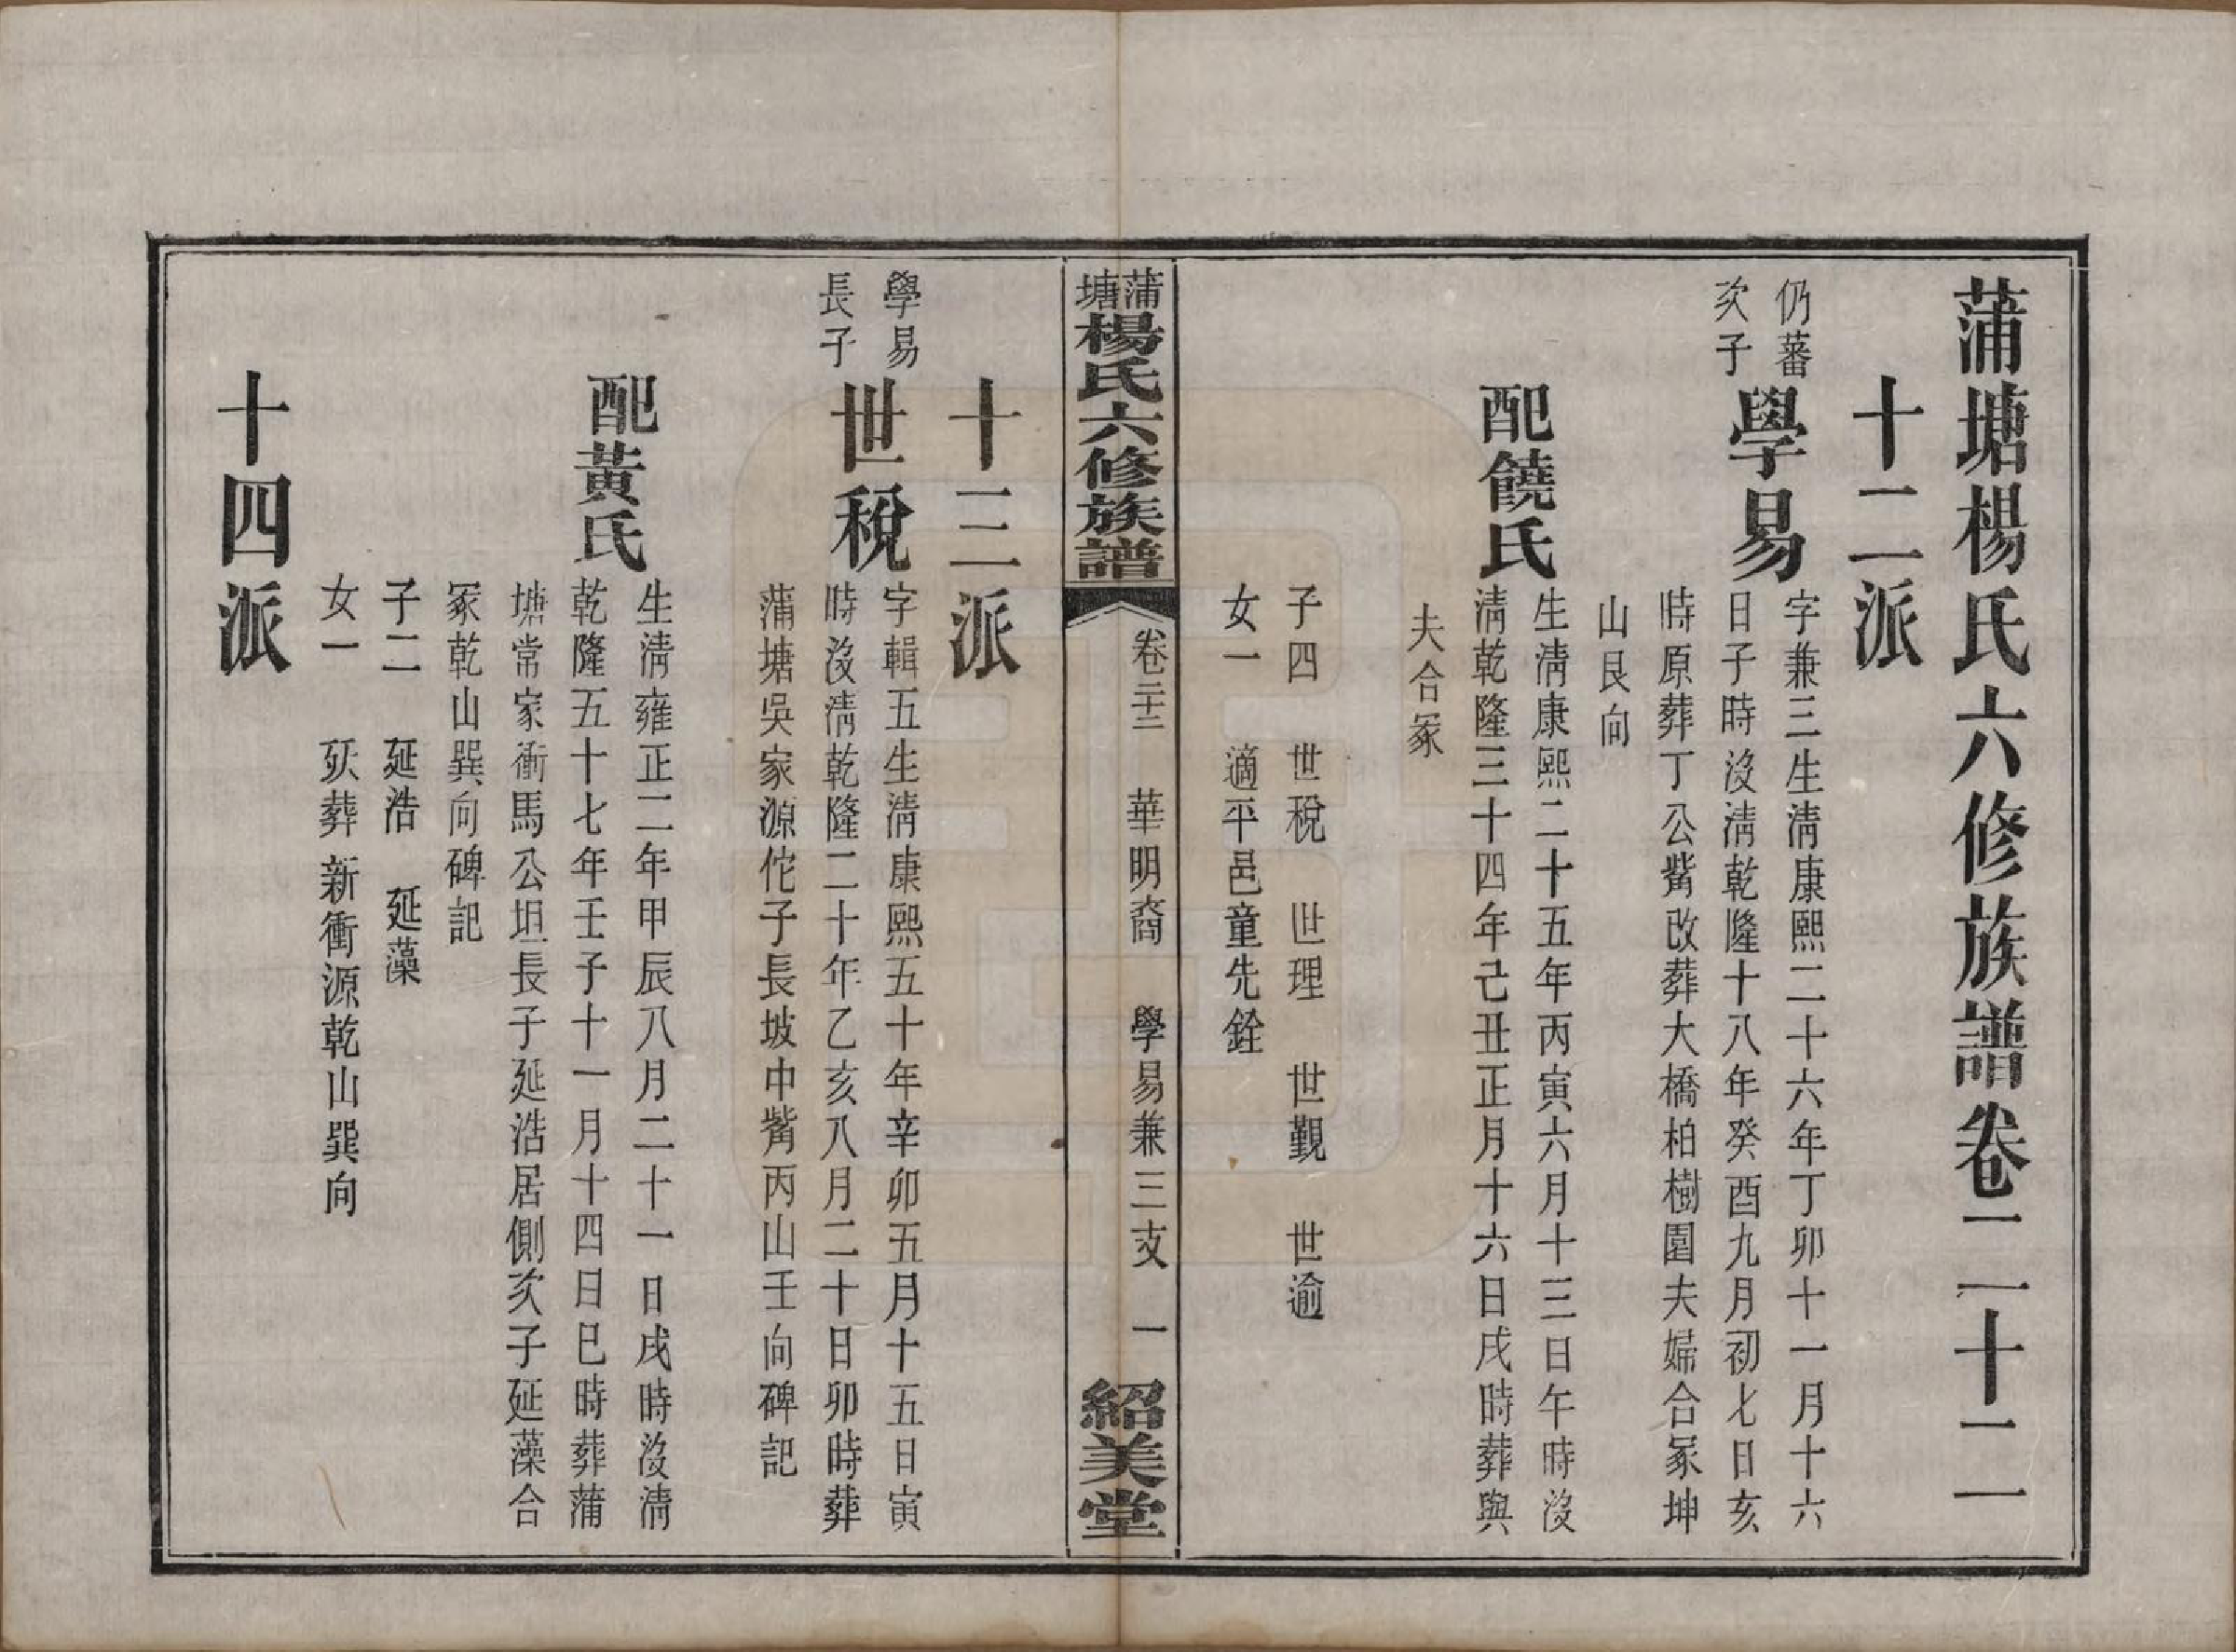 蒲塘楊氏六修族譜卷二十二
十二派
仍蕃
次子
學易
字兼三生淸康熙二十六年丁卯十一月十六
日子時沒淸乾隆十八年癸酉九月初七日亥
時原葬丁公觜改葬大橋柏樹園夫婦合冢坤
山艮向
配饒氏
生淸康熙二十五年丙寅六月十三日午時沒
淸乾隆三十四年己丑正月十六日戌時葬與
夫合冢
子四 世稅 世理 世觀 世逾
女一 適平邑童先銓
蒲塘楊氏六修族譜
卷二十二 華明裔 學易兼三支 一
紹美堂
十三派
學易
長子
世稅
字輯五生淸康熙五十年辛卯五月十五日寅
時沒淸乾隆二十年乙亥八月二十日卯時葬
蒲塘吳家源佗子長坡中觜丙山壬向碑記
配黃氏
生淸雍正二年甲辰八月二十一日戌時沒淸
乾隆五十七年壬子十一月十四日巳時葬蒲
塘常家衝馬公坦長子延浩居側次子延藻合
冢乾山巽向碑記
子二 延浩 延藻
女一 殀葬新衝源乾山巽向
十四派